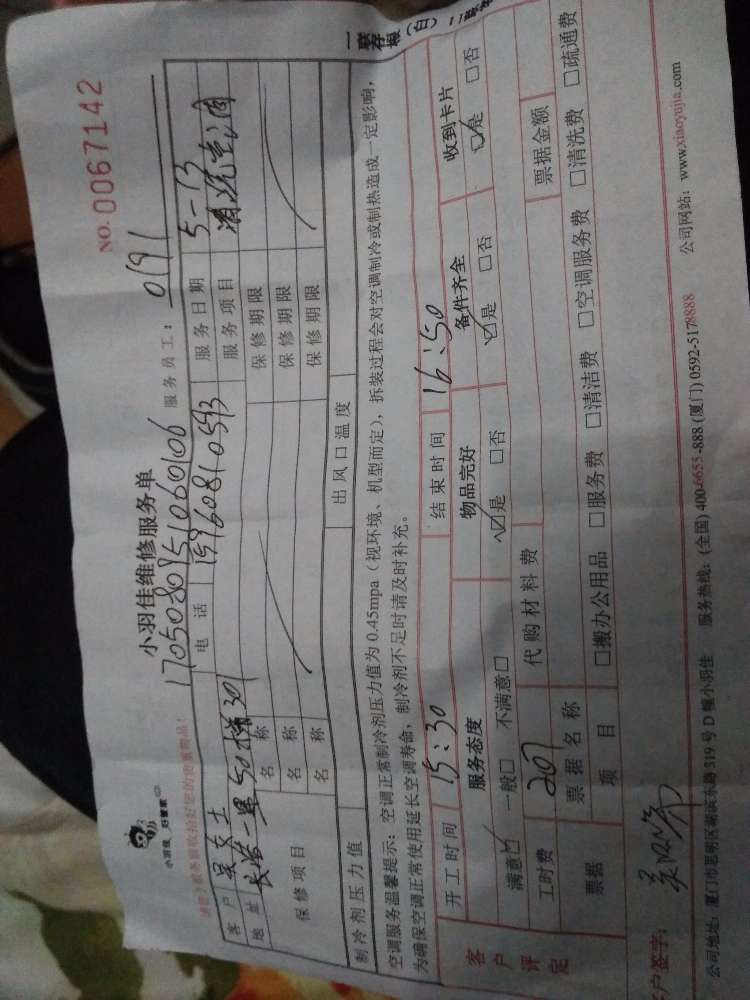 小羽佳 好管家
小羽佳维修服务单
NO. 0067142
170508095106 0106 服务员工: 0191
客户 吴女士 电话 15960810593 服务日期 5-13
地址 长浩一里50梯301 服务项目 清洗空调
保修项目 名称 保修期限
名称 保修期限
名称 保修期限
制冷剂压力值 出风口温度
空调服务温馨提示: 空调正常制冷剂压力值为 0.45mpa (视环境、机型而定), 拆装过程会对空调制冷或制热造成一定影响,
为确保空调正常使用延长空调寿命, 制冷剂不足时请及时补充。
一联存根(白)
客户评定
开工时间 15:30 结束时间 16:50
服务态度 物品完好 备件齐全 收到卡片
满意☑ 一般□ 不满意□ ☑是 □否 ☑是 □否 ☑是 □否
工时费 207 代购材料费
票据 票据名称 票据金额
项目 □搬办公用品 □服务费 □清洁费 □空调服务费 □清洗费 □疏通费
户签字:
公司地址: 厦门市思明区湖滨东路 319 号 D 幢小羽佳 服务热线: (全国) 400-6655-888 (厦门) 0592-5178888 公司网站: www.xiaoyujia.com